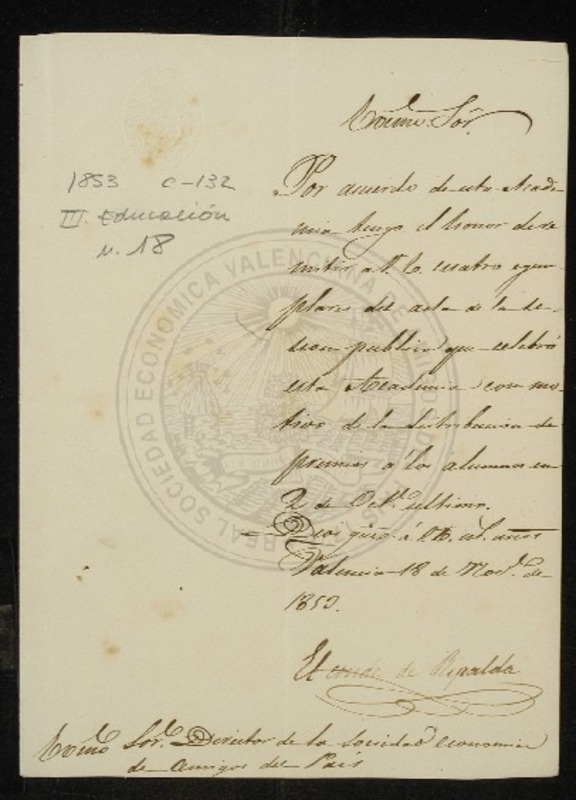 Excmo. Sór.
1853 C-132
III. Educación
n. 18
Por acuerdo de esta Acade
mia tengo el honor de re
mitir a V. E. cuatro ejem
plares del acta de la se-
sion publica que celebró
esta Academia con mo-
tivo de la distribucion de
premios á los alumnos en
2 de Oct.e ultimo.
Dios gue. á V. E. ms. años
Valencia 18 de Nov.e de
1853.
El conde de Ripalda
Excmo. Sór. Director de la Sociedad economica
de Amigos del País
REAL SOCIEDAD ECONOMICA VALENCIANA DE AMIGOS DEL PAIS